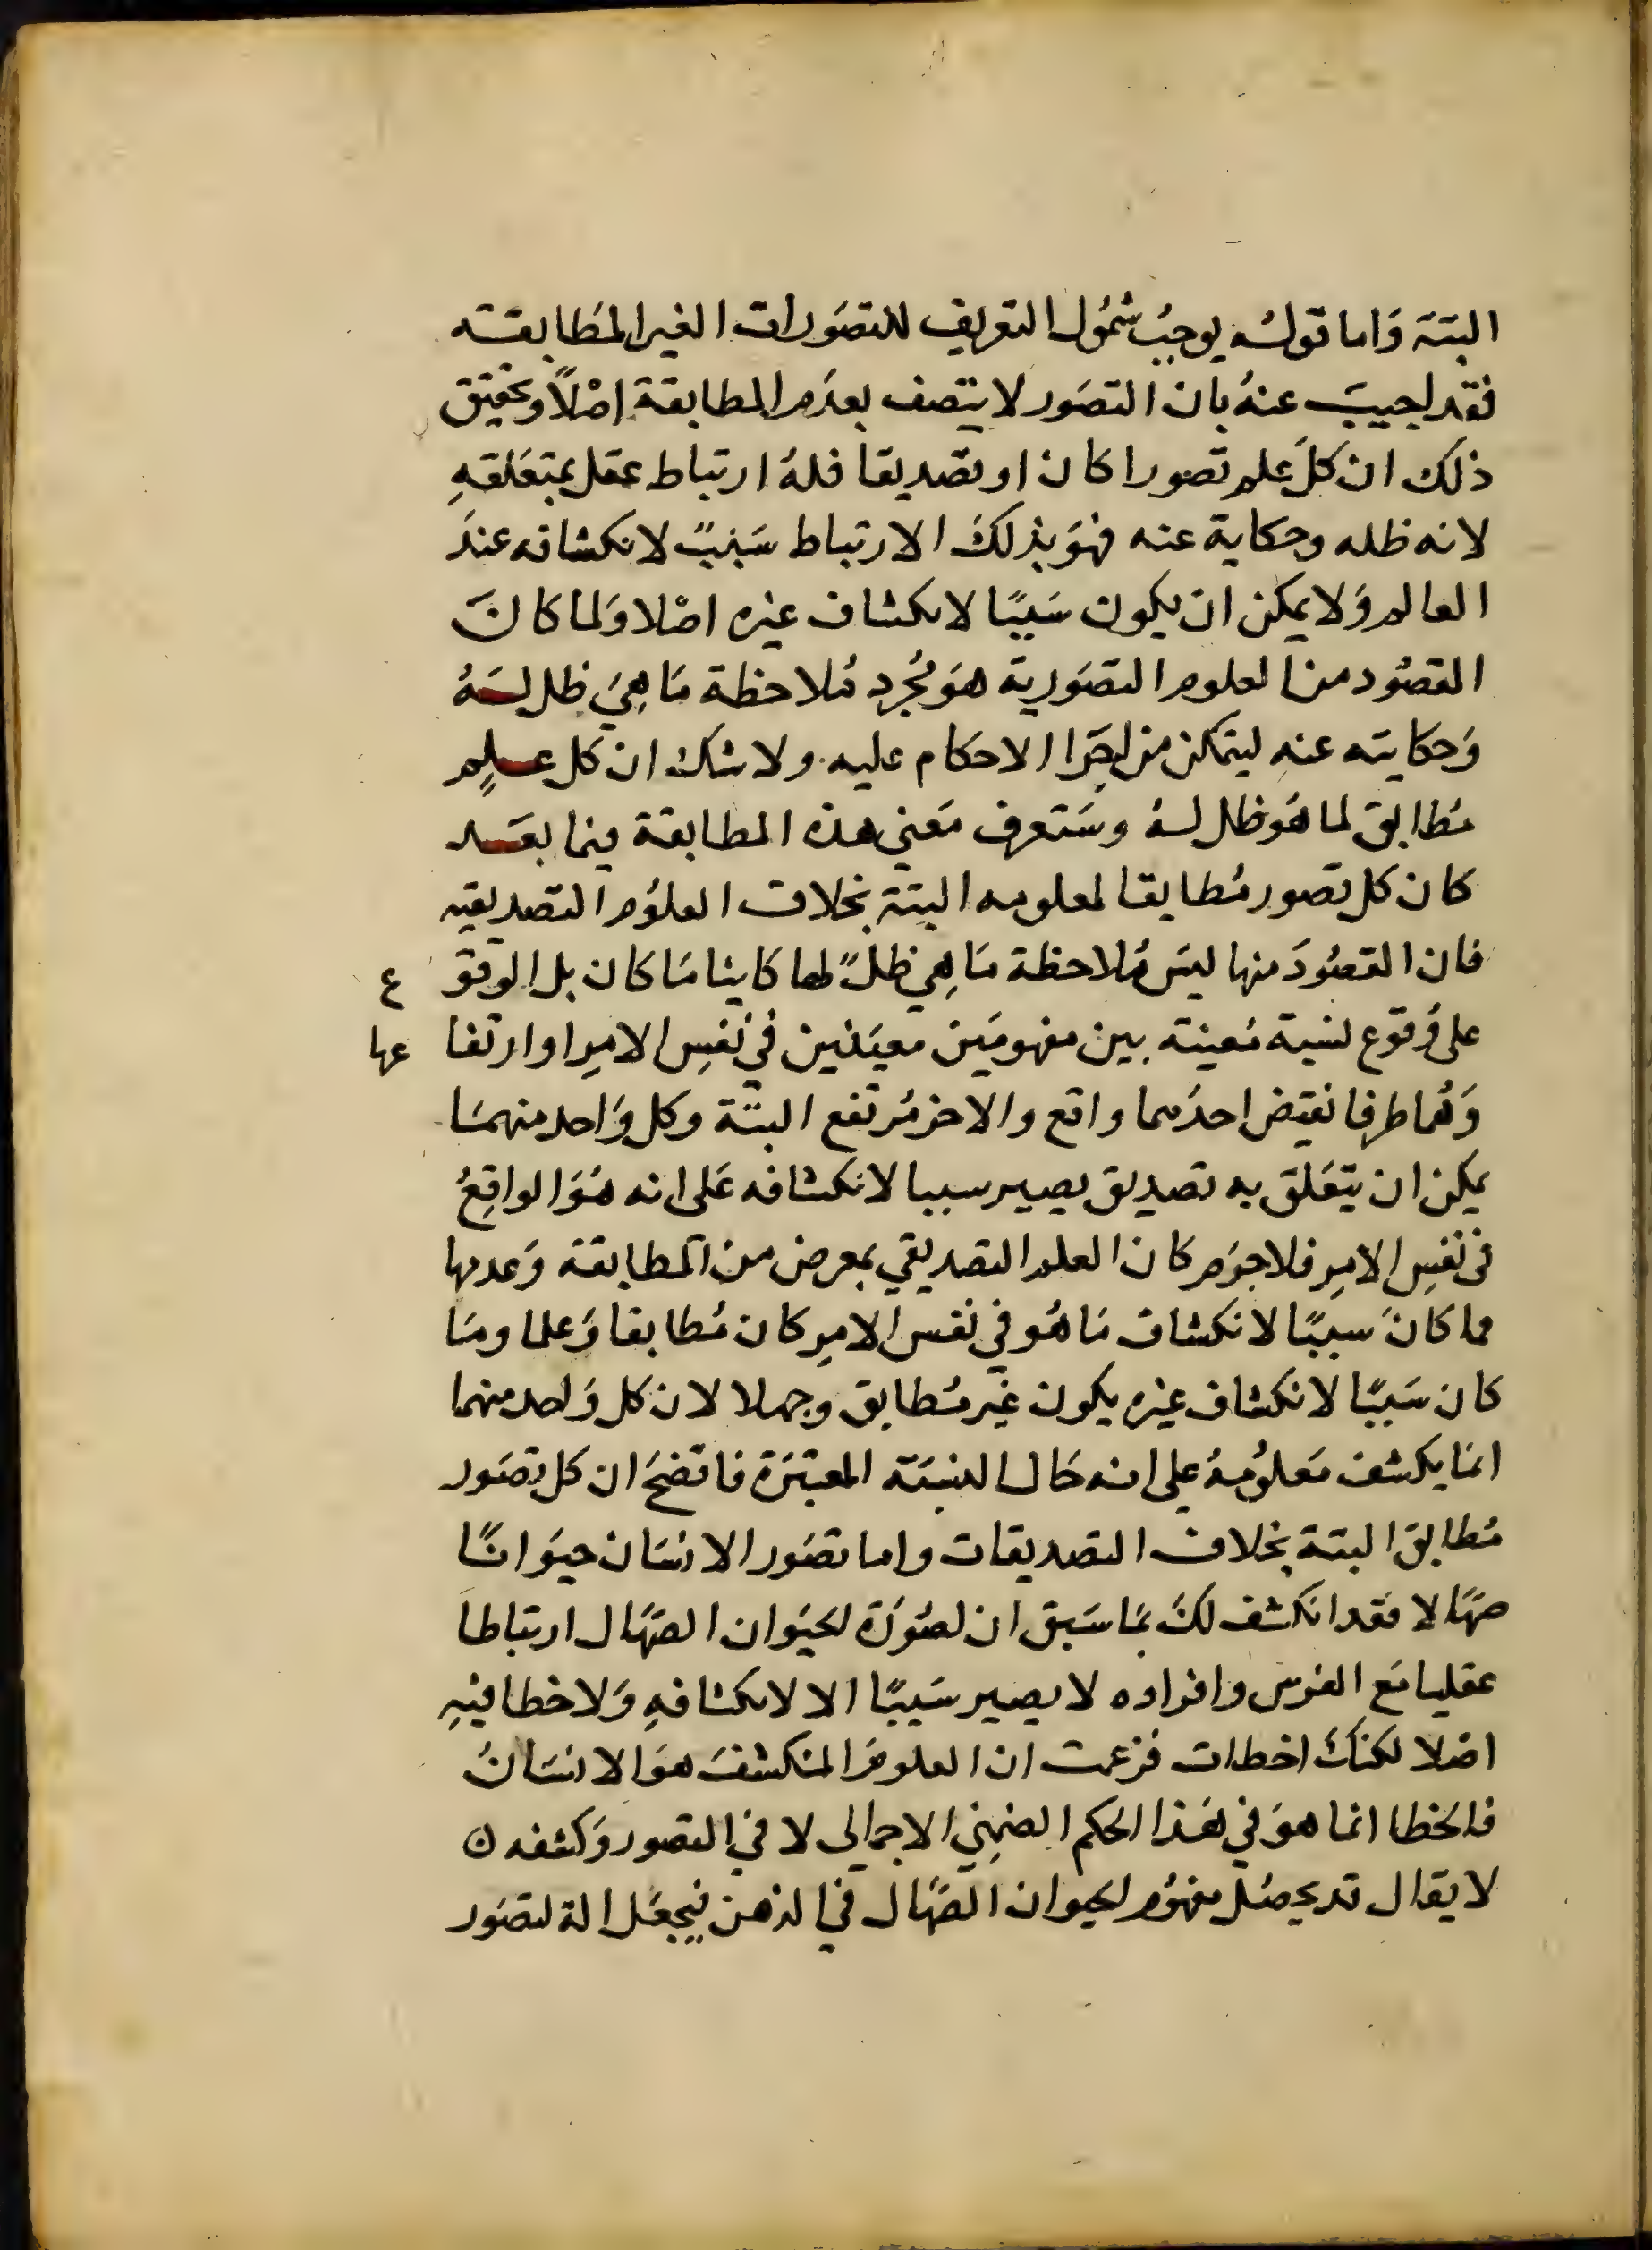 البتة وَاما قوله يوجبُ شمُول التعريف للتصَورات الغير المطَابقة
فقد اجيبَ عنهُ بان التصَور لا يتصف بعدَم المطابقة اصْلاً وتحقيق
ذلك ان كلَ علم تصورا كان او تصديقا فلهُ ارتباط عقل بمتعَلقهِ
لانه ظله وحكاية عنه فهوَ بذلكَ الارتباط سَببٌ لانكشافه عندَ
العالم وَلا يمكن ان يكون سَببًا لانكشاف غيره اصْلا وَلما كانَ
القصُود من العلوم التصَورية هوَ مُجرد مُلاحظة مَا هِيَ ظل لهُ
وَحكايته عنهِ ليتمكن من اجرَا الاحكام عليه ولا شك ان كل علمٍ
مُطابق لما هُوَ ظل لهُ وسَتعرف مَعني هذه المطابقة فيما بعَد
كان كل تصور مُطابقا لمعلومه البتة بخلاف العلوُم التصديقيه
فان القصُودَ منها ليسَ مُلاحظة مَا هِي ظلً لها كاينا مَا كان بل الوقوَ ع
على وُقوع نسبة مُعينة بين مفهومَين معيَنين في نفسِ الامرِ او ارتفا عها
وَهُما طرفا نقيض احدُهما واقع والاخر مُرتفع البتّة وكل وَاحد منهمَا
يمكن ان يتعَلق به تصديق يصير سببا لانكشافه عَلى انه هُوَ الواقِعُ
في نفسِ الامرِ فلا جرَم كان العلم التصديقي بمعرض من المطابقة وَعدمها
فما كانَ سببًا لانكشاف مَا هُو في نفس الامرِ كان مُطابقا وَعلما ومَا
كان سَببًا لانكشاف غيره يكون غيرَ مُطابق وجهلا لان كل وَاحد منهما
انمَا يكشف مَعلوُمهُ على انه حَال النسبَة المعتبَرة فاتضحَ ان كل تصَور
مُطابق البتة بخلاف التصديقات واما تصَور الانسَان حيوَانًا
صهَالا فقد انكشف لكَ بمَا سَبق ان لصُورَة الحيَوان الصهَال ارتباطا
عقليا مَع الفرس وافراده لا يصير سَببًا الا لانكشافهِ وَلا خطا فيهِ
اصْلا لكنكَ اخطات فزعمت ان العلومَ المنكشفَ هوَ الانسَانُ
فالخطا انما هوَ في هَذا الحكم الضمِني الاجمالى لا في التصور وَكشفه ن
لا يقال قد يحصُل مفهوُم الحيوان الصهَال في الذهن فيجعَل الة لتصَور